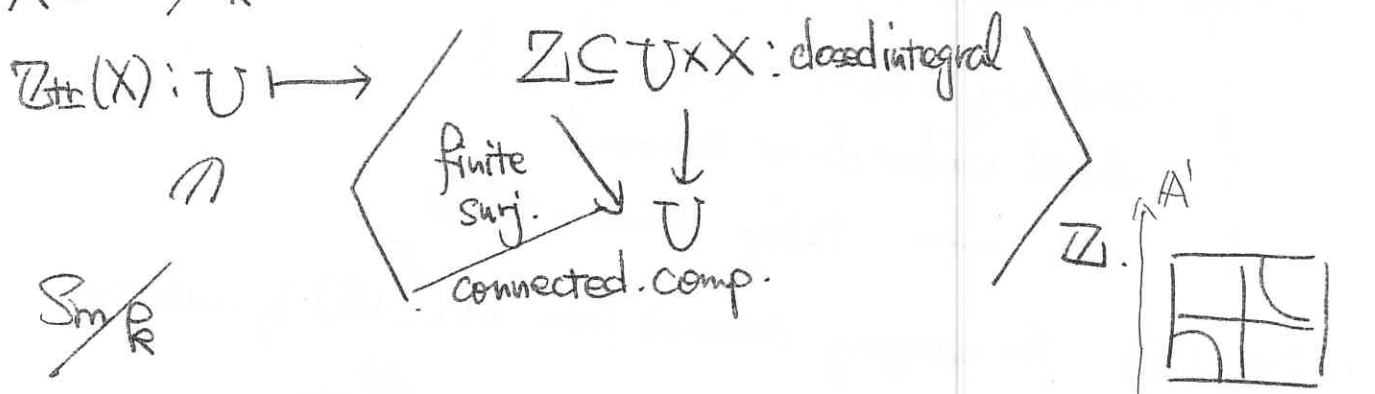 ℤtr(X) : U ⟼ ⟨ Z ⊆ U × X : closed integral
finite
surj.
U
connected. comp. ⟩ ℤ.
𝔸¹
∩
Sm/k